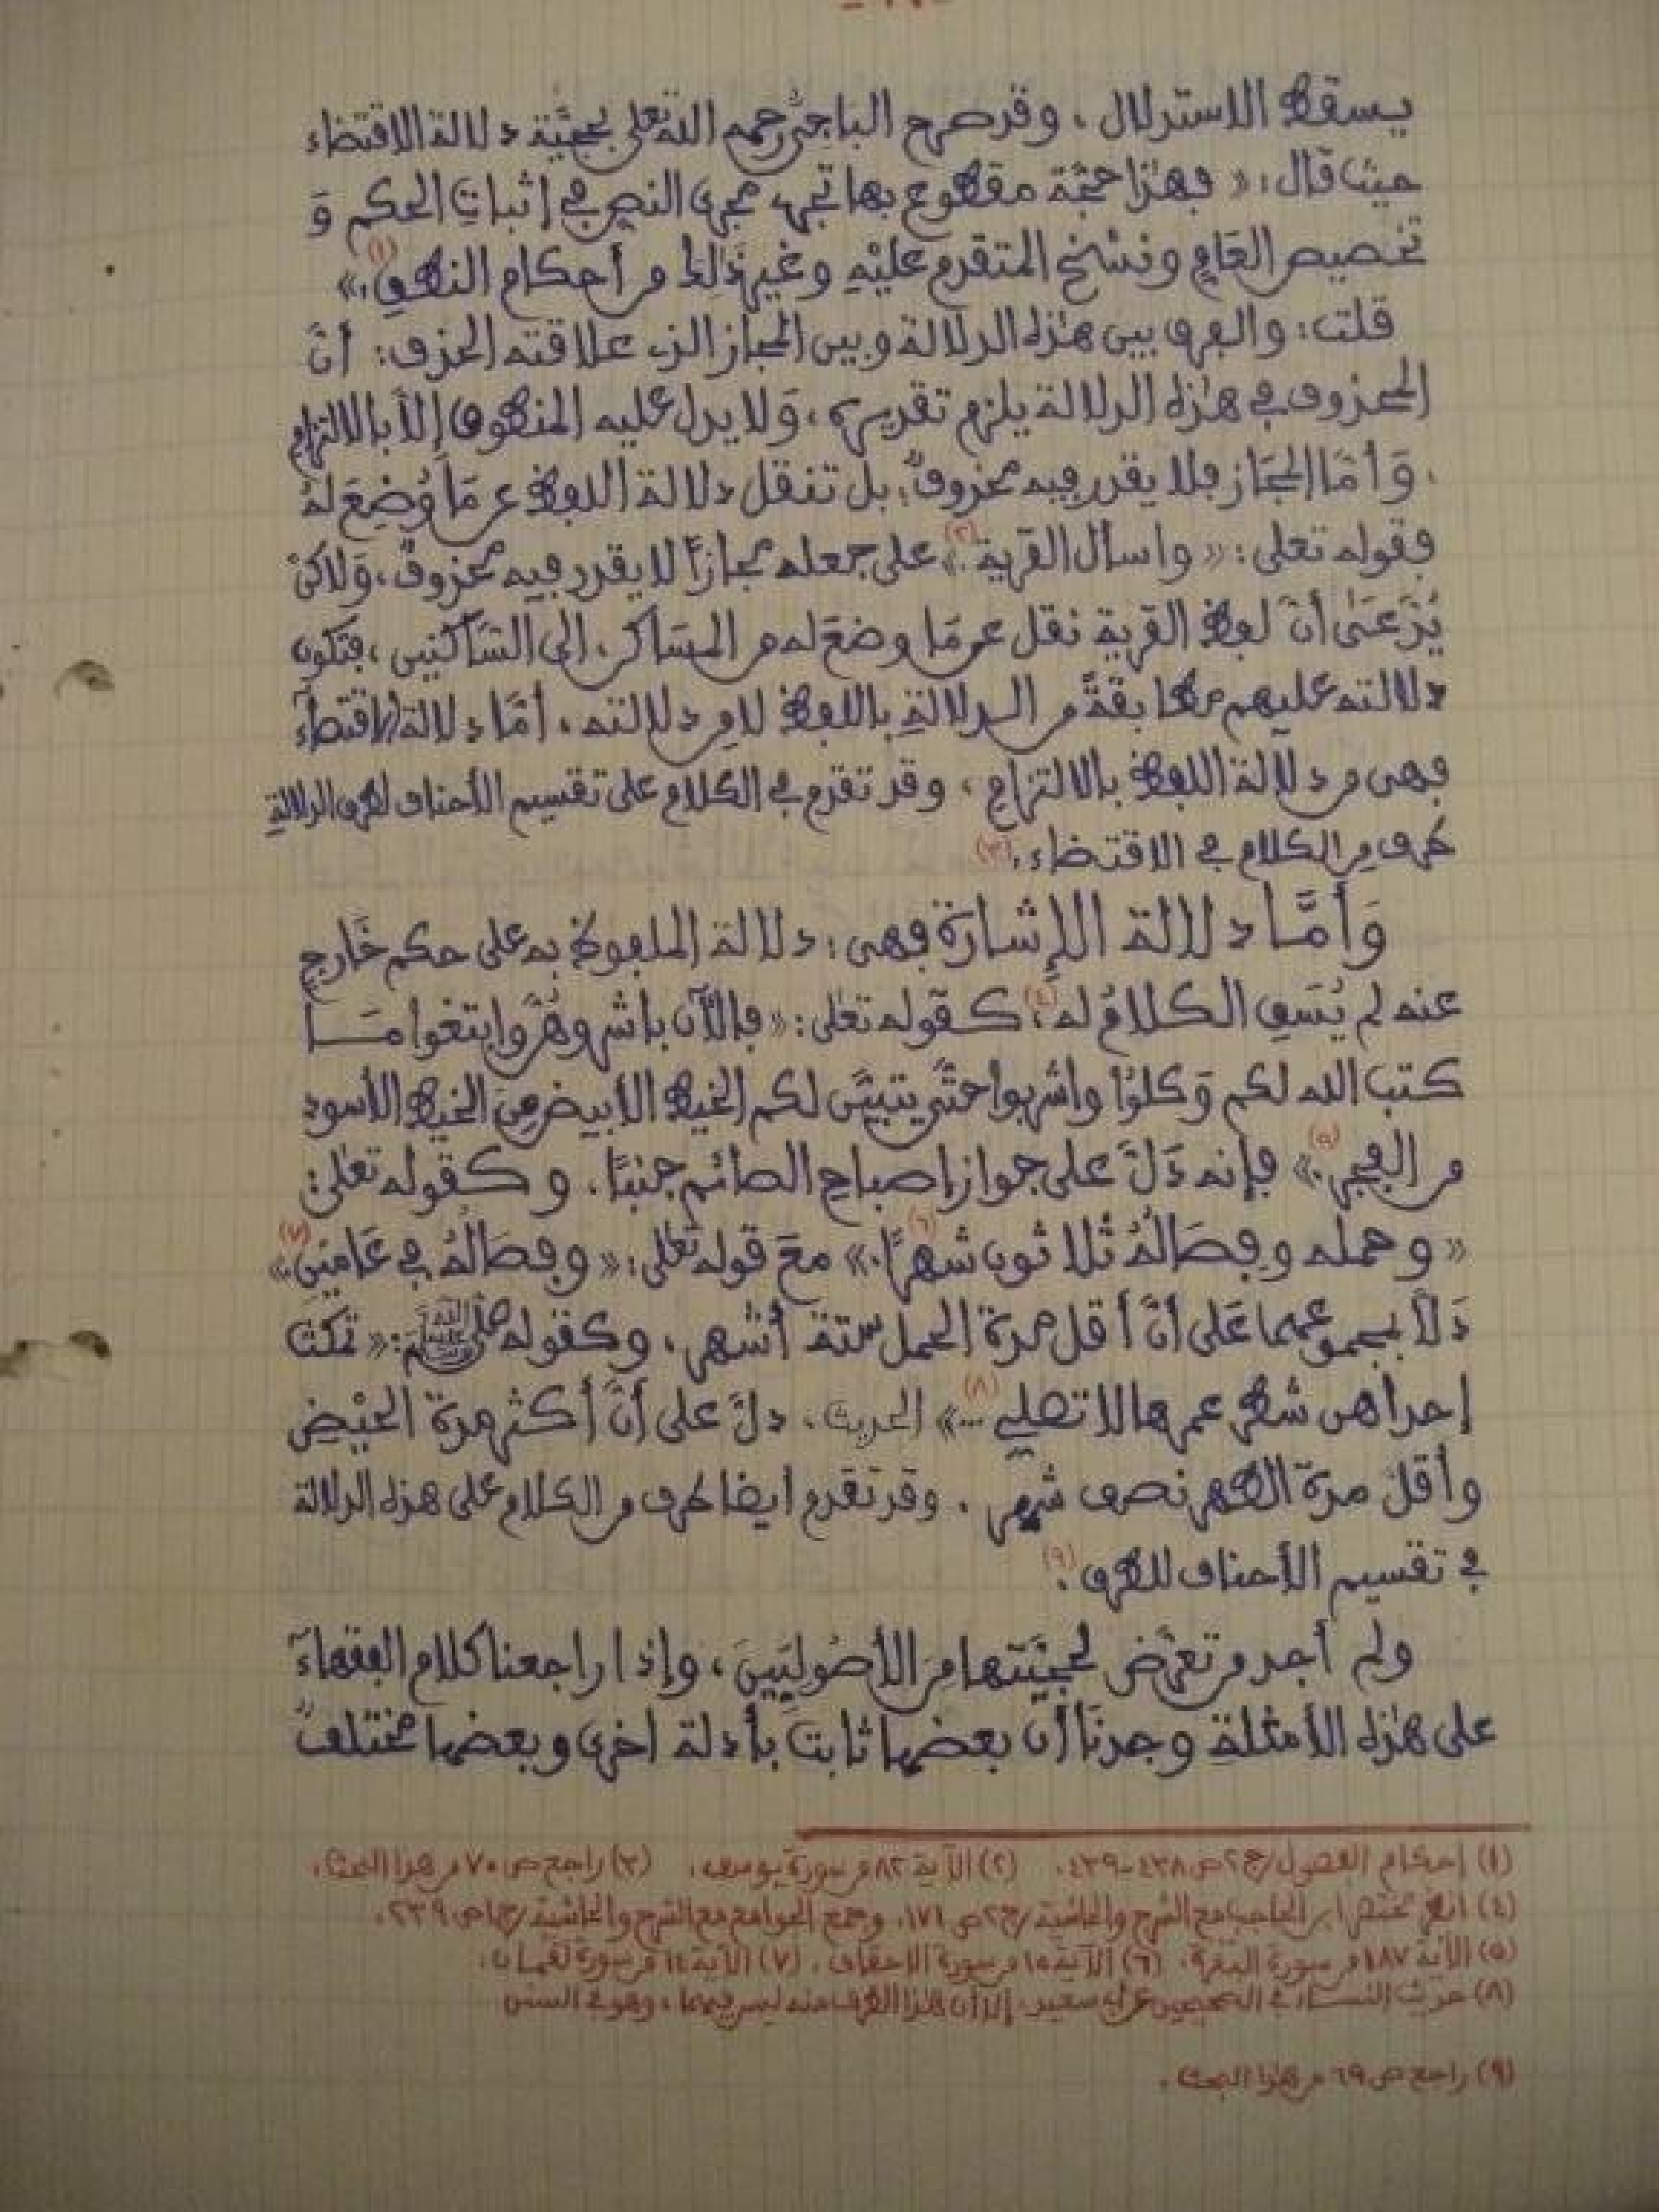 يسقط الاستدلال، وقد صرح الباجي رحمه الله تعلى بحجيَّة دلالة الاقتضاء
حيث قال: «فهٰذا حجَّة مقطوع بها تجري مجرى النص في إثباتِ الحكم وَ
تخصيص العَامِ ونسْخ المتقدم عليْهِ وغير ذٰلك من أحكام النطق.»(١)
قلت: والفرق بين هٰذه الدلالة وبين المجاز الذي علاقته الحذف: أنَّ
المحذوف في هٰذه الدلالة يلزم تقديره، وَلا يدل عليه المنطوق إلاَّ بالالتزام
، وَأمَّا المجَاز فلا يقدر فيه محذوفٌ؛ بل تنقل دلالة اللفظ عن مَا وُضِعَ لهُ
فقوله تعلى: «واسأل القرية.»(٢) على جعله مجازًا لا يقدر فيه محذوفٌ، وَلاكنْ
يُدَّعَىٰ أنَّ لفظ القرية نقل عن مَا وضعَ له من المسَاكن، إلى السَّاكنين، فتكون
دلالته عليهم مطابقةً من الدلالةِ باللفظ لا من دلالته، أمَّا دلالة الاقتضآء
فهى من دلالة اللفظ بالالتزام، وقد تقدم في الكلام على تقسيم الأحناف لطرق الدلالةِ
طرف من الكلام في الاقتضاء.(٣)
وَأمَّا دلالة الإشارة فهى: دلالة الملفوظ به على حكم خَارج
عنه لم يُسَقِ الكلامُ له؛(٤) كقوله تعٰلى: «فالآن باشروهُنَّ وابتغوا مَا
كتب الله لكم وَكلوُا واشربوا حتَّى يتبيَّن لكم الخيط الأبيض مِنَ الخيط الأسود
من الفجر.»(٥) فإنه دَلَّ على جواز إصباح الصائم جنبًا. وكقوله تعٰلى:
«وحمله وفِصَالُهُ ثلاثون شهرًا.»(٦) معَ قوله تعٰلى: «وفِصَالُهُ في عَامَيْن.»(٧)
دَلاَّ بمجموعهما عَلى أنَّ أقل مدة الحمل ستة أشهر. وكقوله صلى الله عليه وسلم: «تمكث
إحداهن شطر عمرها لا تصلي...»(٨) الحديث. دلَّ على أنَّ أكثر مدة الحيْضِ
وأقلَّ مدة الطهر نصف شهر. وقد تقدم أيضا طرف من الكلام على هذه الدلالة
في تقسيم الأحناف للطرق.(٩)
ولم أجد من تعرَّض لحجيَّتها من الأصُوليِينَ، وإذا راجعنا كلام الفقهآءَ
على هٰذه الأمثلةِ وجدنَا أن بعضها ثابت بأدلة اخرى وبعضها مختلفٌ
(١) إحكام الفصول/ج٢ص٤٣٨-٤٣٩. (٢) الآية ٨٢ من سورة يوسف. (٣) راجع ص ٧٠ من هذا البحث.
(٤) انظر مختصر ابن الحاجب مع الشرح والحاشية/ج٢ص١٧١. وجمع الجوامع مع الشرح والحاشية/ج١ص٢٣٩.
(٥) الآية ١٨٧ من سورة البقرة. (٦) الآية ١٥ من سورة الاحقاف. (٧) الآية ١٤ من سورة لقمان.
(٨) حديث النساء في الصحيحين عن أبي سعيد، إلا أن هٰذا الطرف منه ليس فيهما، وهو في السنن
(٩) راجع ص ٦٩ من هٰذا البحث.